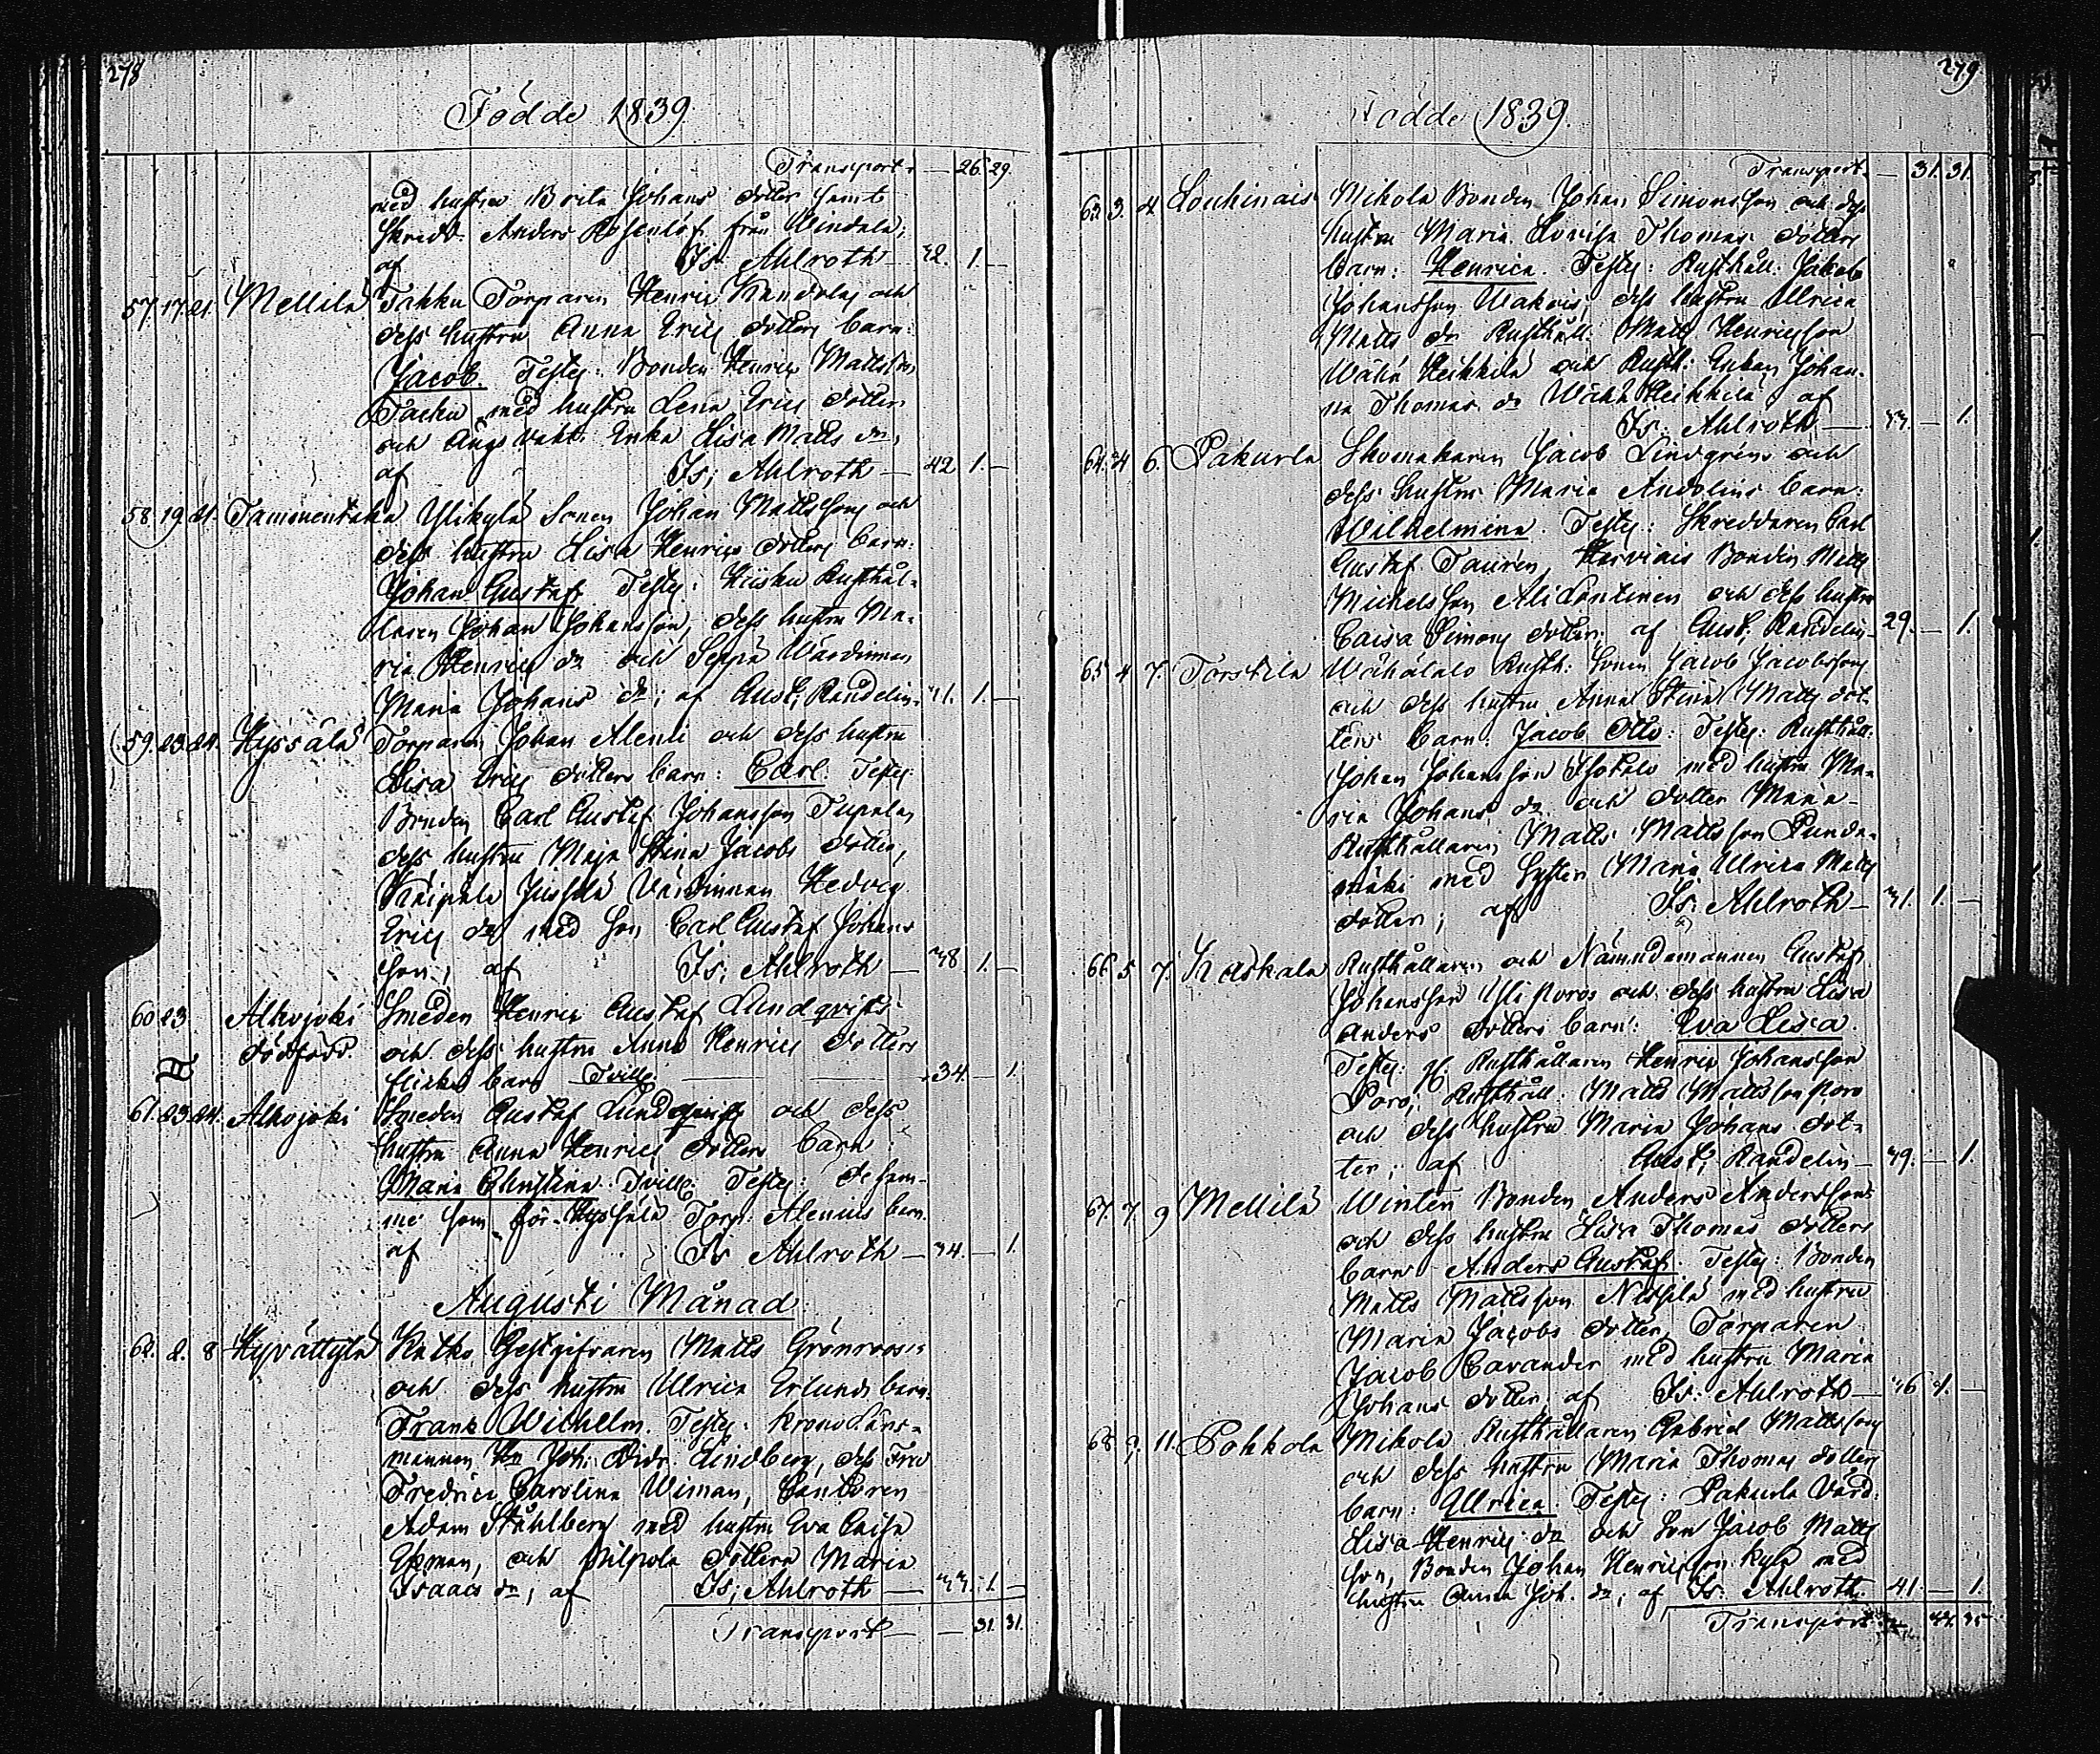 278
Födde 1839
Transport — 26. 29.
med hustru Brita Johans dotter samt
Skredd. Anders Rosenlöf från Windala;
af Is: Ahlroth — 42. 1. —
57. 17. 21. Mellilä Takku Torparen Henric Randolas och
dess hustru Anna Erics dotters barn:
Jacob. Testes: Bonden Henric Mattsson
Tacku med hustru Lena Erics dotter
och Ängs vakt. Enka Lisa Matts dr,
af Is; Ahlroth — 42 1. —
58. 19. 21. Tammentaka Ylikylä Sonen Johan Mattssons och
dess hustru Lisa Henrics dotters barn:
Johan Gustaf. Testes: Hiisku Rusthål-
laren Johan Johansson, dess hustru Ma-
ria Henrics dr och Seppä Wärdinnan
Maria Johans dr; af Gust. Randelin. 41. 1. —
59. 23. 24. Hyssälä Torparen Johan Aleni och dess hustru
Lisa Erics dotters barn: Carl. Testes:
Bonden Carl Gustaf Johansson Tupala,
dess hustru Maja Stina Jacobs dotter,
Jussila Värdinnan Hedvig
Erics dr med son Carl Gustaf Johans
son, af Is; Ahlroth — 38 1. —
60 23 Alhojoki Smeden Henric Gustaf Lundqvists
dödfödd. och dess hustru Anna Henrics dotters
flicko barn Tvilli: — 34. — 1.
61. 23. 24. Alhojoki Smeden Gustaf Lundqvists och dess
hustru Anna Henrics dotters barn
Maria Christina. Tvill. Testes: de sam-
me som för Hyssälä Torp. Alenius barn.
af Is Ahlroth — 34. — 1.
Augusti Månad
62. 2. 8 Hyvättylä Katko Gestgifvaren Matts Grönroos's
och dess hustru Ulrica Erlunds barn:
Frans Wilhelm. Testes: Krono Läns-
mannen Hr Joh: Didr. Lindberg, dess Fru
Fredrica Carolina Wiman, Cantoren
Adam Ståhlberg med hustru Eva Caisa
Ekman, och Pilpola dottern Maria
Isaacs dr, af Is; Ahlroth — 33. 1. —
Transport — — 31. 31.
279
Födde 1839.
Transport. — 31. 31.
63. 3. 4 Louhinais Mikola Bonden Johan Simonsson och dess
hustru Maria Lovisa Thomas dotters
barn: Henrica. Testes: Rusthåll. Jakob
Johansson Wakois, dess hustru Ulrica
Matts dr Rusthåll. Matts Henricsson
Wähä Heikkilä och Rusth: Enkan Johan-
na Thomas dr Wähä Heikkilä af
Is: Ahlroth — 33. — 1.
64. 4 6. Pakurla Skomakaren Jacob Lindgréns och
dess hustru Maria Andolins barn:
Wilhelmina. Testes: Skreddaren Carl
Gustaf Taurén, Bonden Matts
Michelsson Ali Lontinen och dess hustru
Caisa Simons dotter; af Gust. Randelin 29. — 1.
65 4 7. Torstila Wähätalo Rusth: Sonen Jacob Jacobssons
och dess hustru Anna Stina Matts dot-
ters barn: Jacob Otto: Testes: Rusthåll.
Johan Johansson Isotalo med hustru Ma-
ria Johans dr och dotter Maria
Rusthållaren Matts Mattsson Punda-
mäki med Syster Maria Ulrica Matts
dotter; af Is. Ahlroth — 31. 1. —
66. 5 7. Raskala Rusthållaren och Nämndemannen Gustaf
Johansson Yli Poros och dess hustru Lisa
Anders dotters barn: Eva Lisa.
Testes: Rusthållaren Henric Johansson
Poro, Rusthåll: Matts Mattsson Poro
och dess hustru Maria Johans dot-
ter; af Gust. Randelin — 39. — 1.
67. 7 9 Mellilä Winten Bonden Anders Anderssons
och dess hustru Lisa Thomas dotters
barn Anders Gustaf. Testes: Bonden
Matts Mattsson Nissilä med hustru
Maria Jacobs dotter, Torparen
Jacob Cavander med hustru Maria
Johans dotter, af Is: Ahlroth — 36 1. —
68 9 11. Pohkola Mikola Rusthållaren Gabriel Mattssons
och dess hustru Maria Thomas dotters
barn: Ulrica. Testes: Pakurla Värd:
Lisa Henrics dr och Son Jacob Matts
son, Bonden Johan Henricsson Kylä med
hustru Anna Joh. dr, af Is: Ahlroth. 41. — 1.
Transport 35